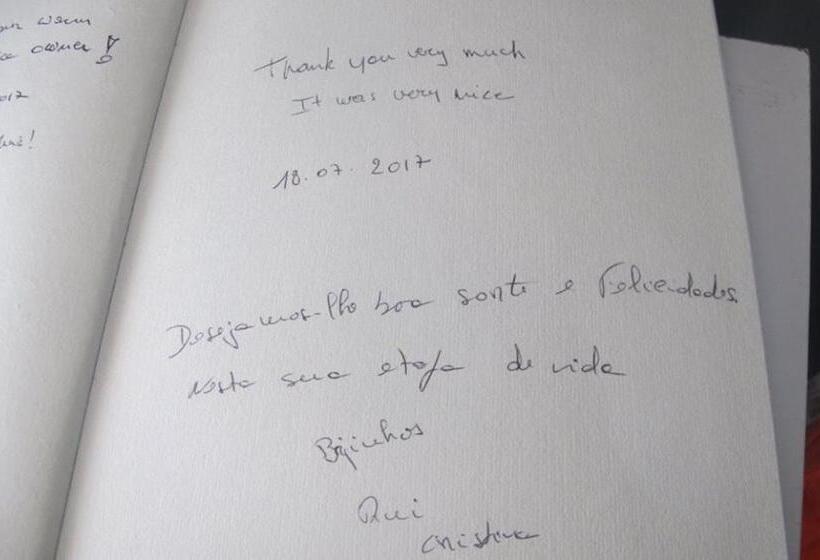 owner!
Thank you very much
It was very nice
18.07.2017
Desejamos-lhe boa sorte e Felicidades.
Nesta sua etapa de vida
Bijinhos
Qui
Cristina